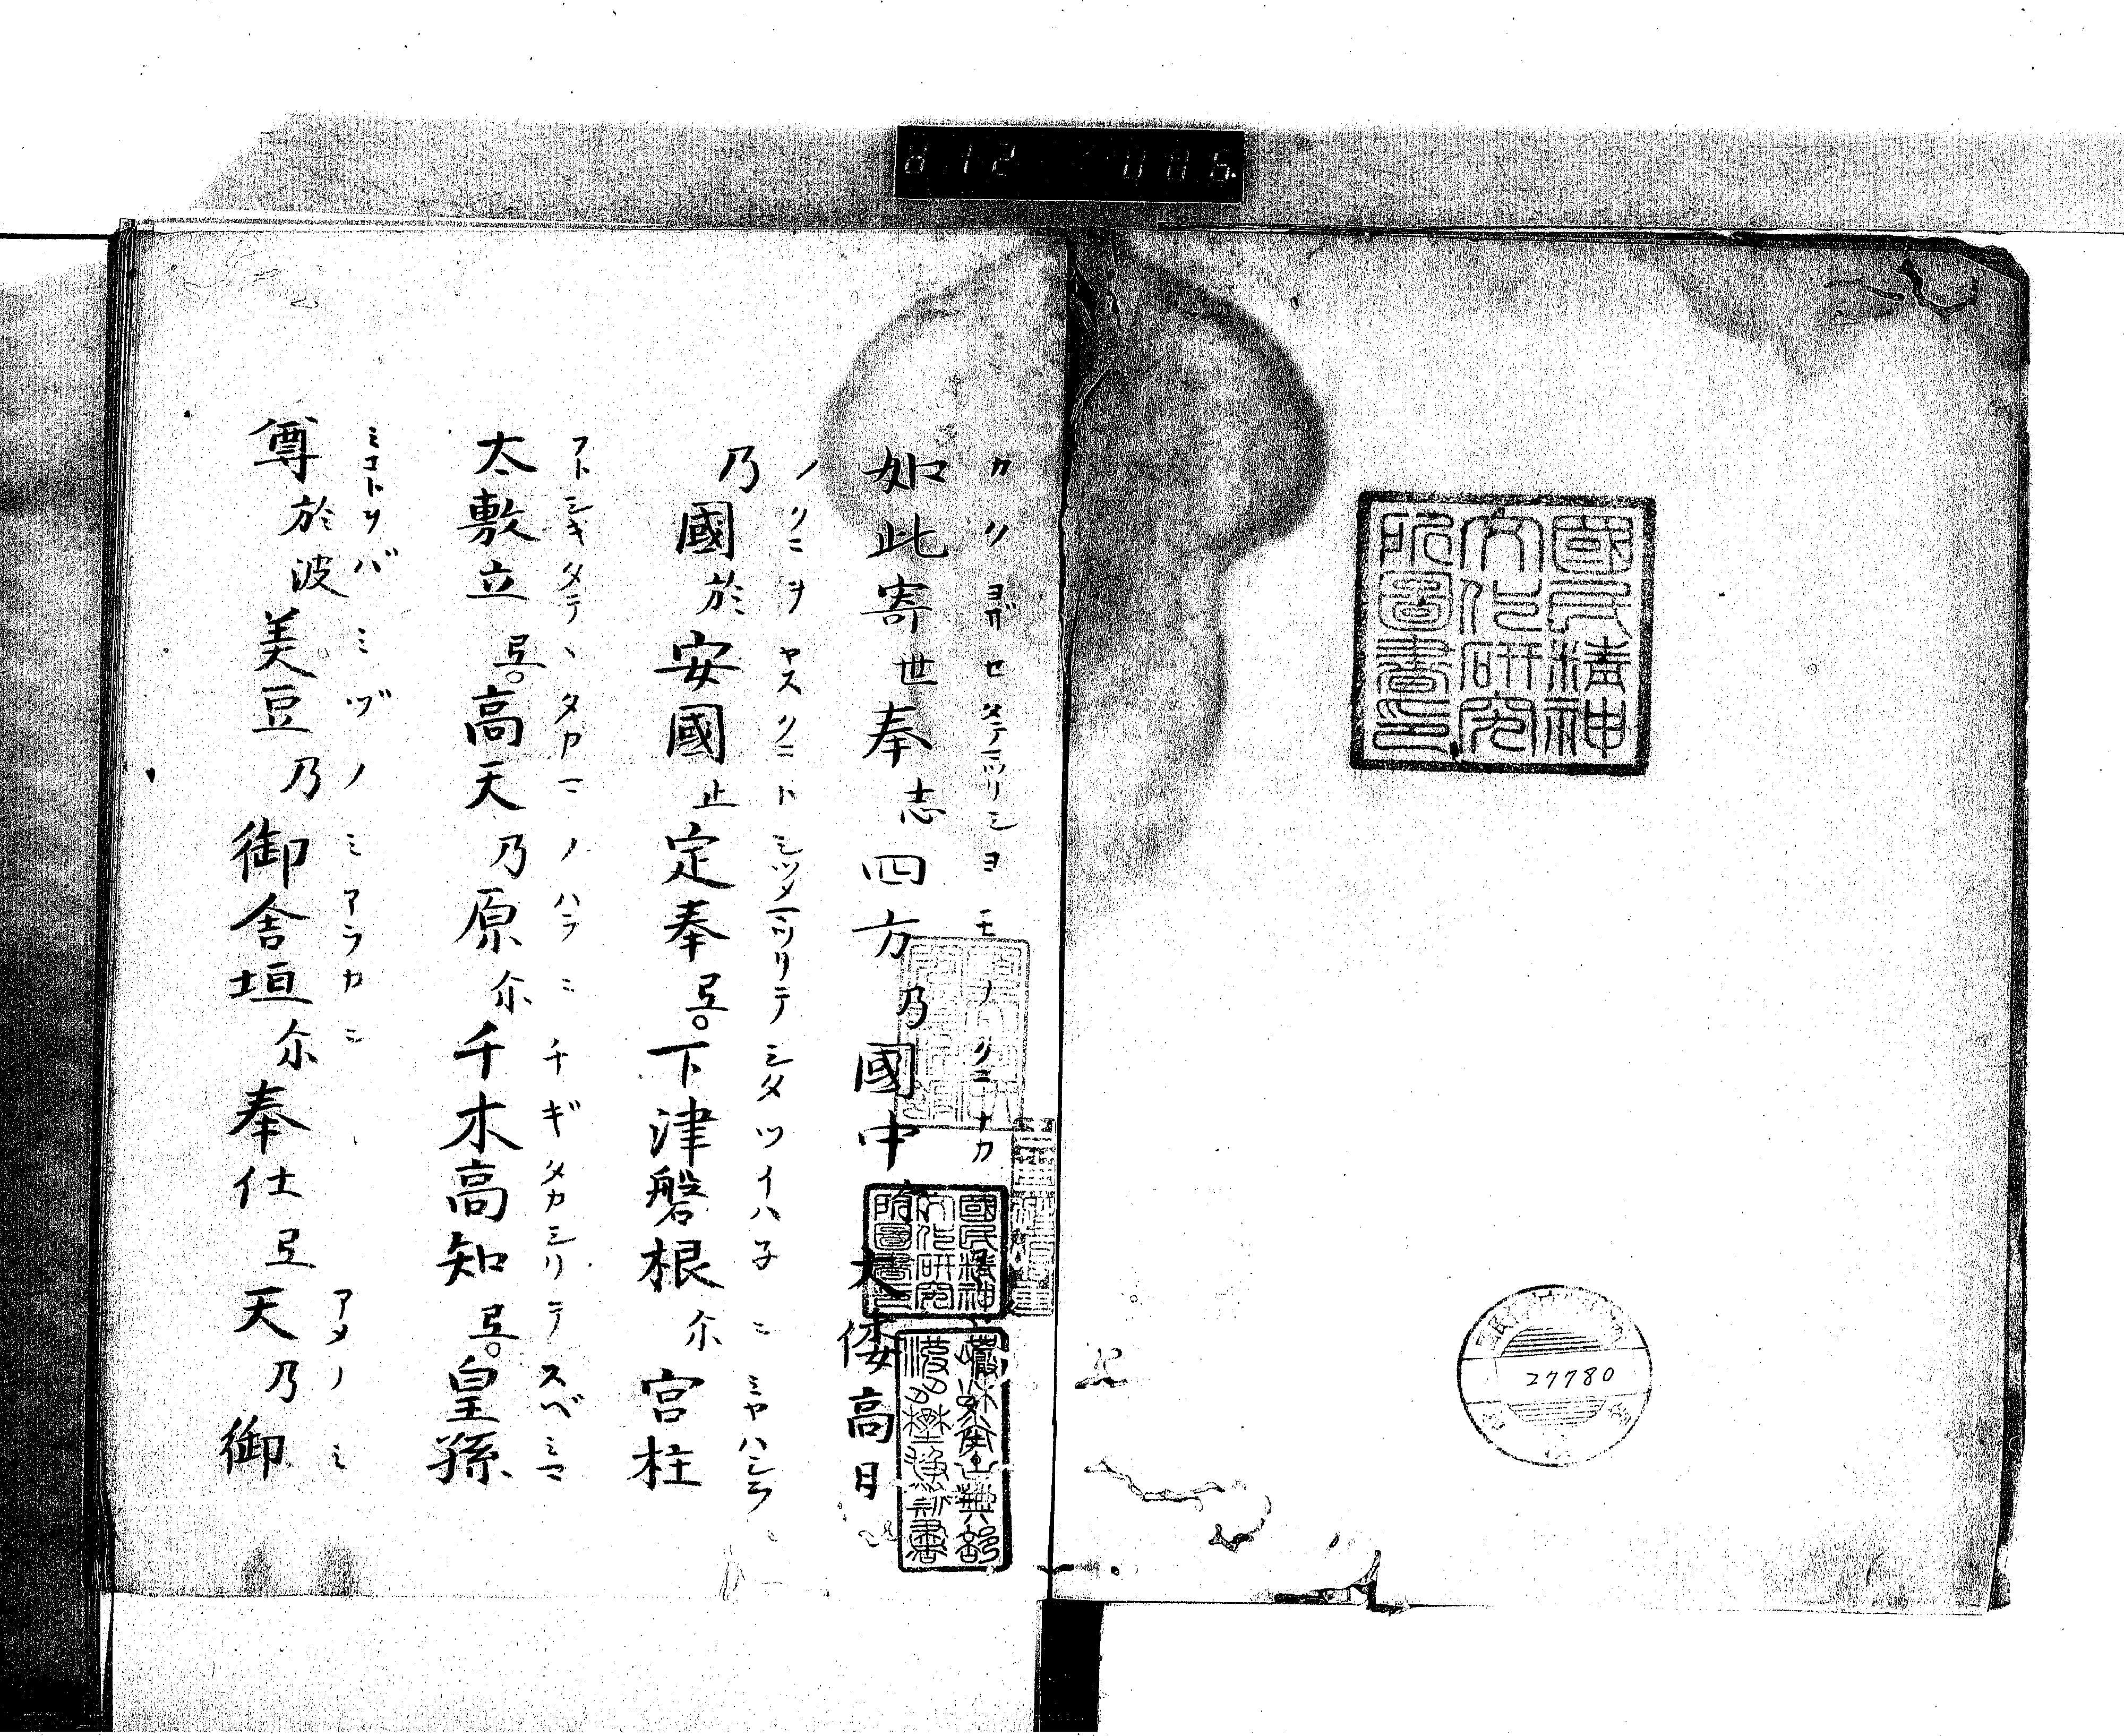 國民精神
文化研究
所圖書印
27780
カクヨザセタテマツリシヨモノクニナカ
如此寄世奉志四方乃國中 大倭高日
ノクニヲヤスクニトシヅメマツリテシタツイハネニミヤハシラ
乃國於安國止定奉弖。下津磐根尓宮柱
フトシキタテヽタカマノハラニチギタカシリテスベミマ
太敷立弖。高天乃原尓千木高知弖。皇孫
ミコトヲバミヅノミアラカニ アメノミ
尊於波美豆乃御舎垣尓奉仕弖天乃御
國民精神
文化研究
所圖書印